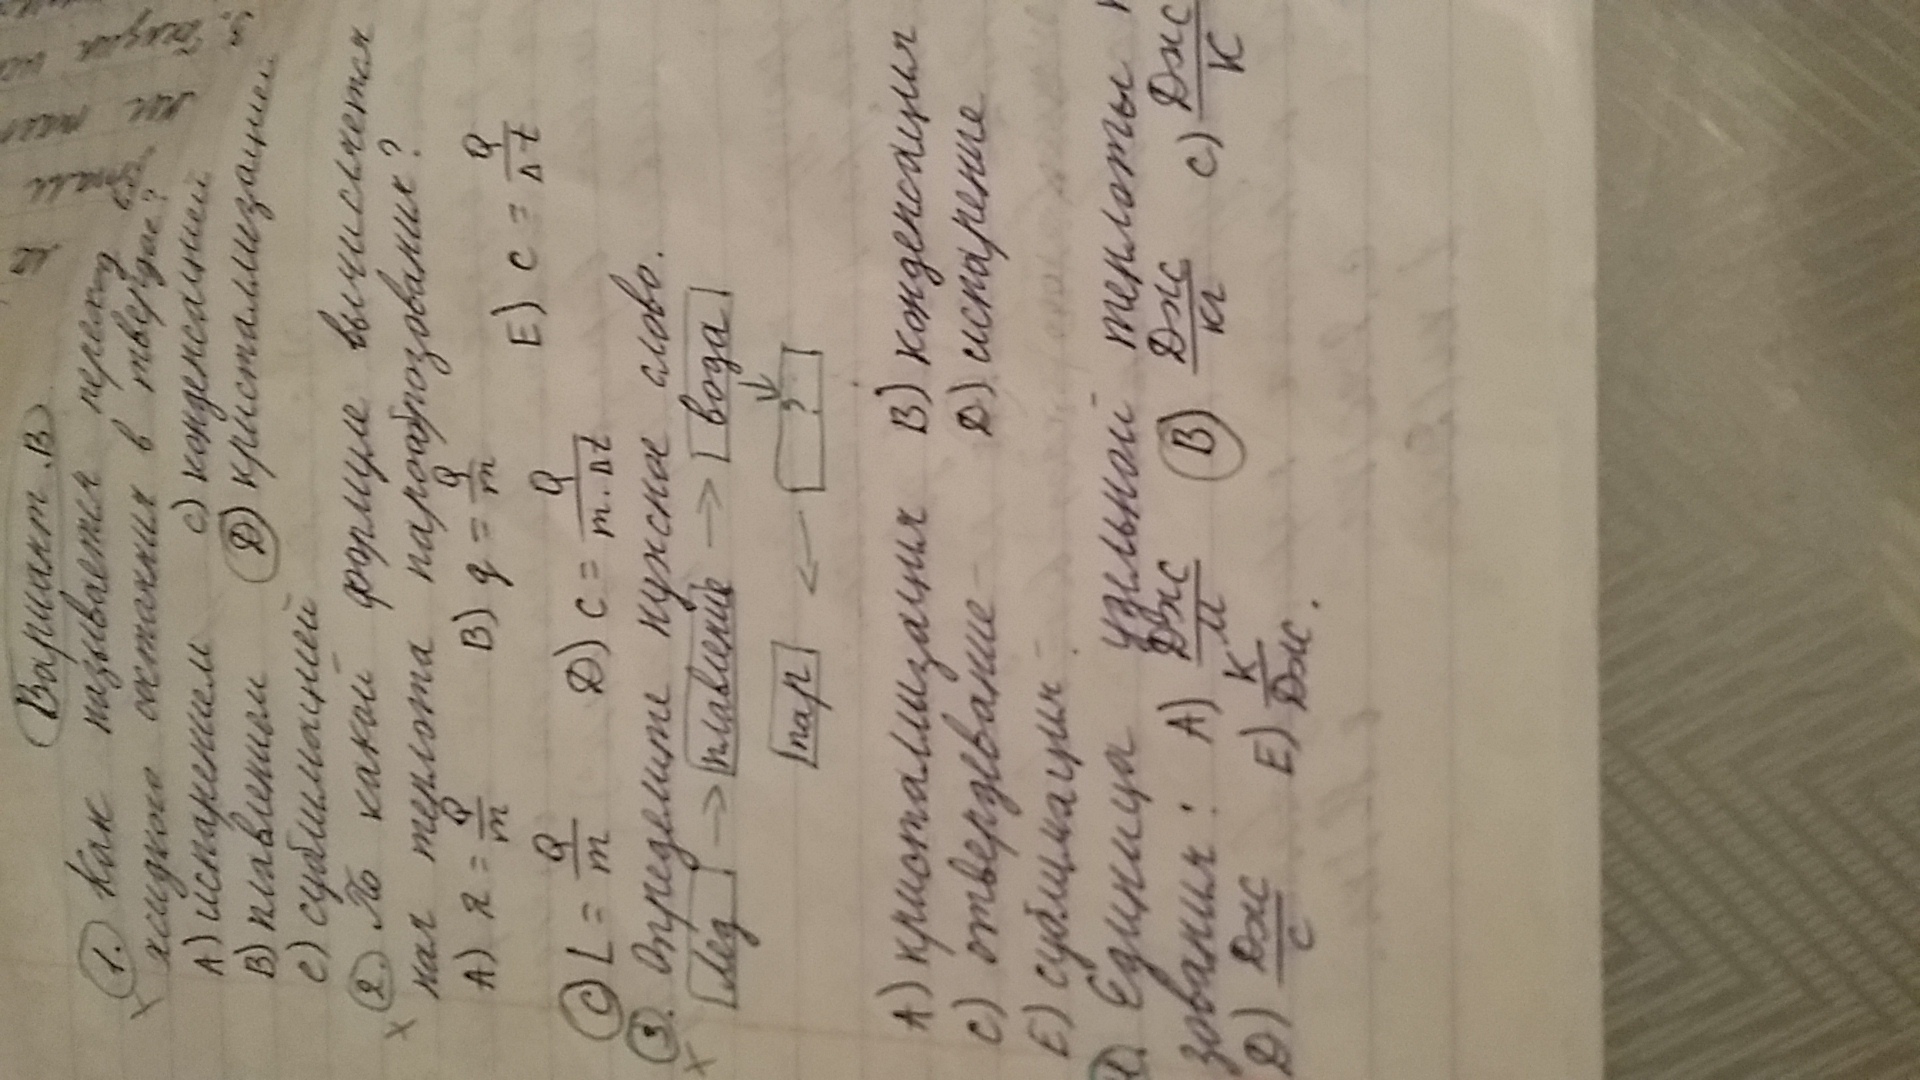 Вариант.В
1. Как называется переход
жидкого состояния в твердое?
А) испарением С) конденсацией
В) плавлением D) кристаллизацией
Е) сублимацией
2. По какой формуле вычисляется
ная теплота парообразования?
А) λ = Q/m В) q = Q/m
С) L = Q/m D) C = Q/m·Δt Е) C = Q/Δt
3. Определите нужное слово.
лед → плавление → вода
пар ← ?
А) кристаллизация В) конденсация
С) отвердевание D) испарение
Е) сублимация
4. Единица удельной теплоты
зования: А) Дж/м В) Дж/кг С) Дж/К
D) Дж/с Е) К/Дж.